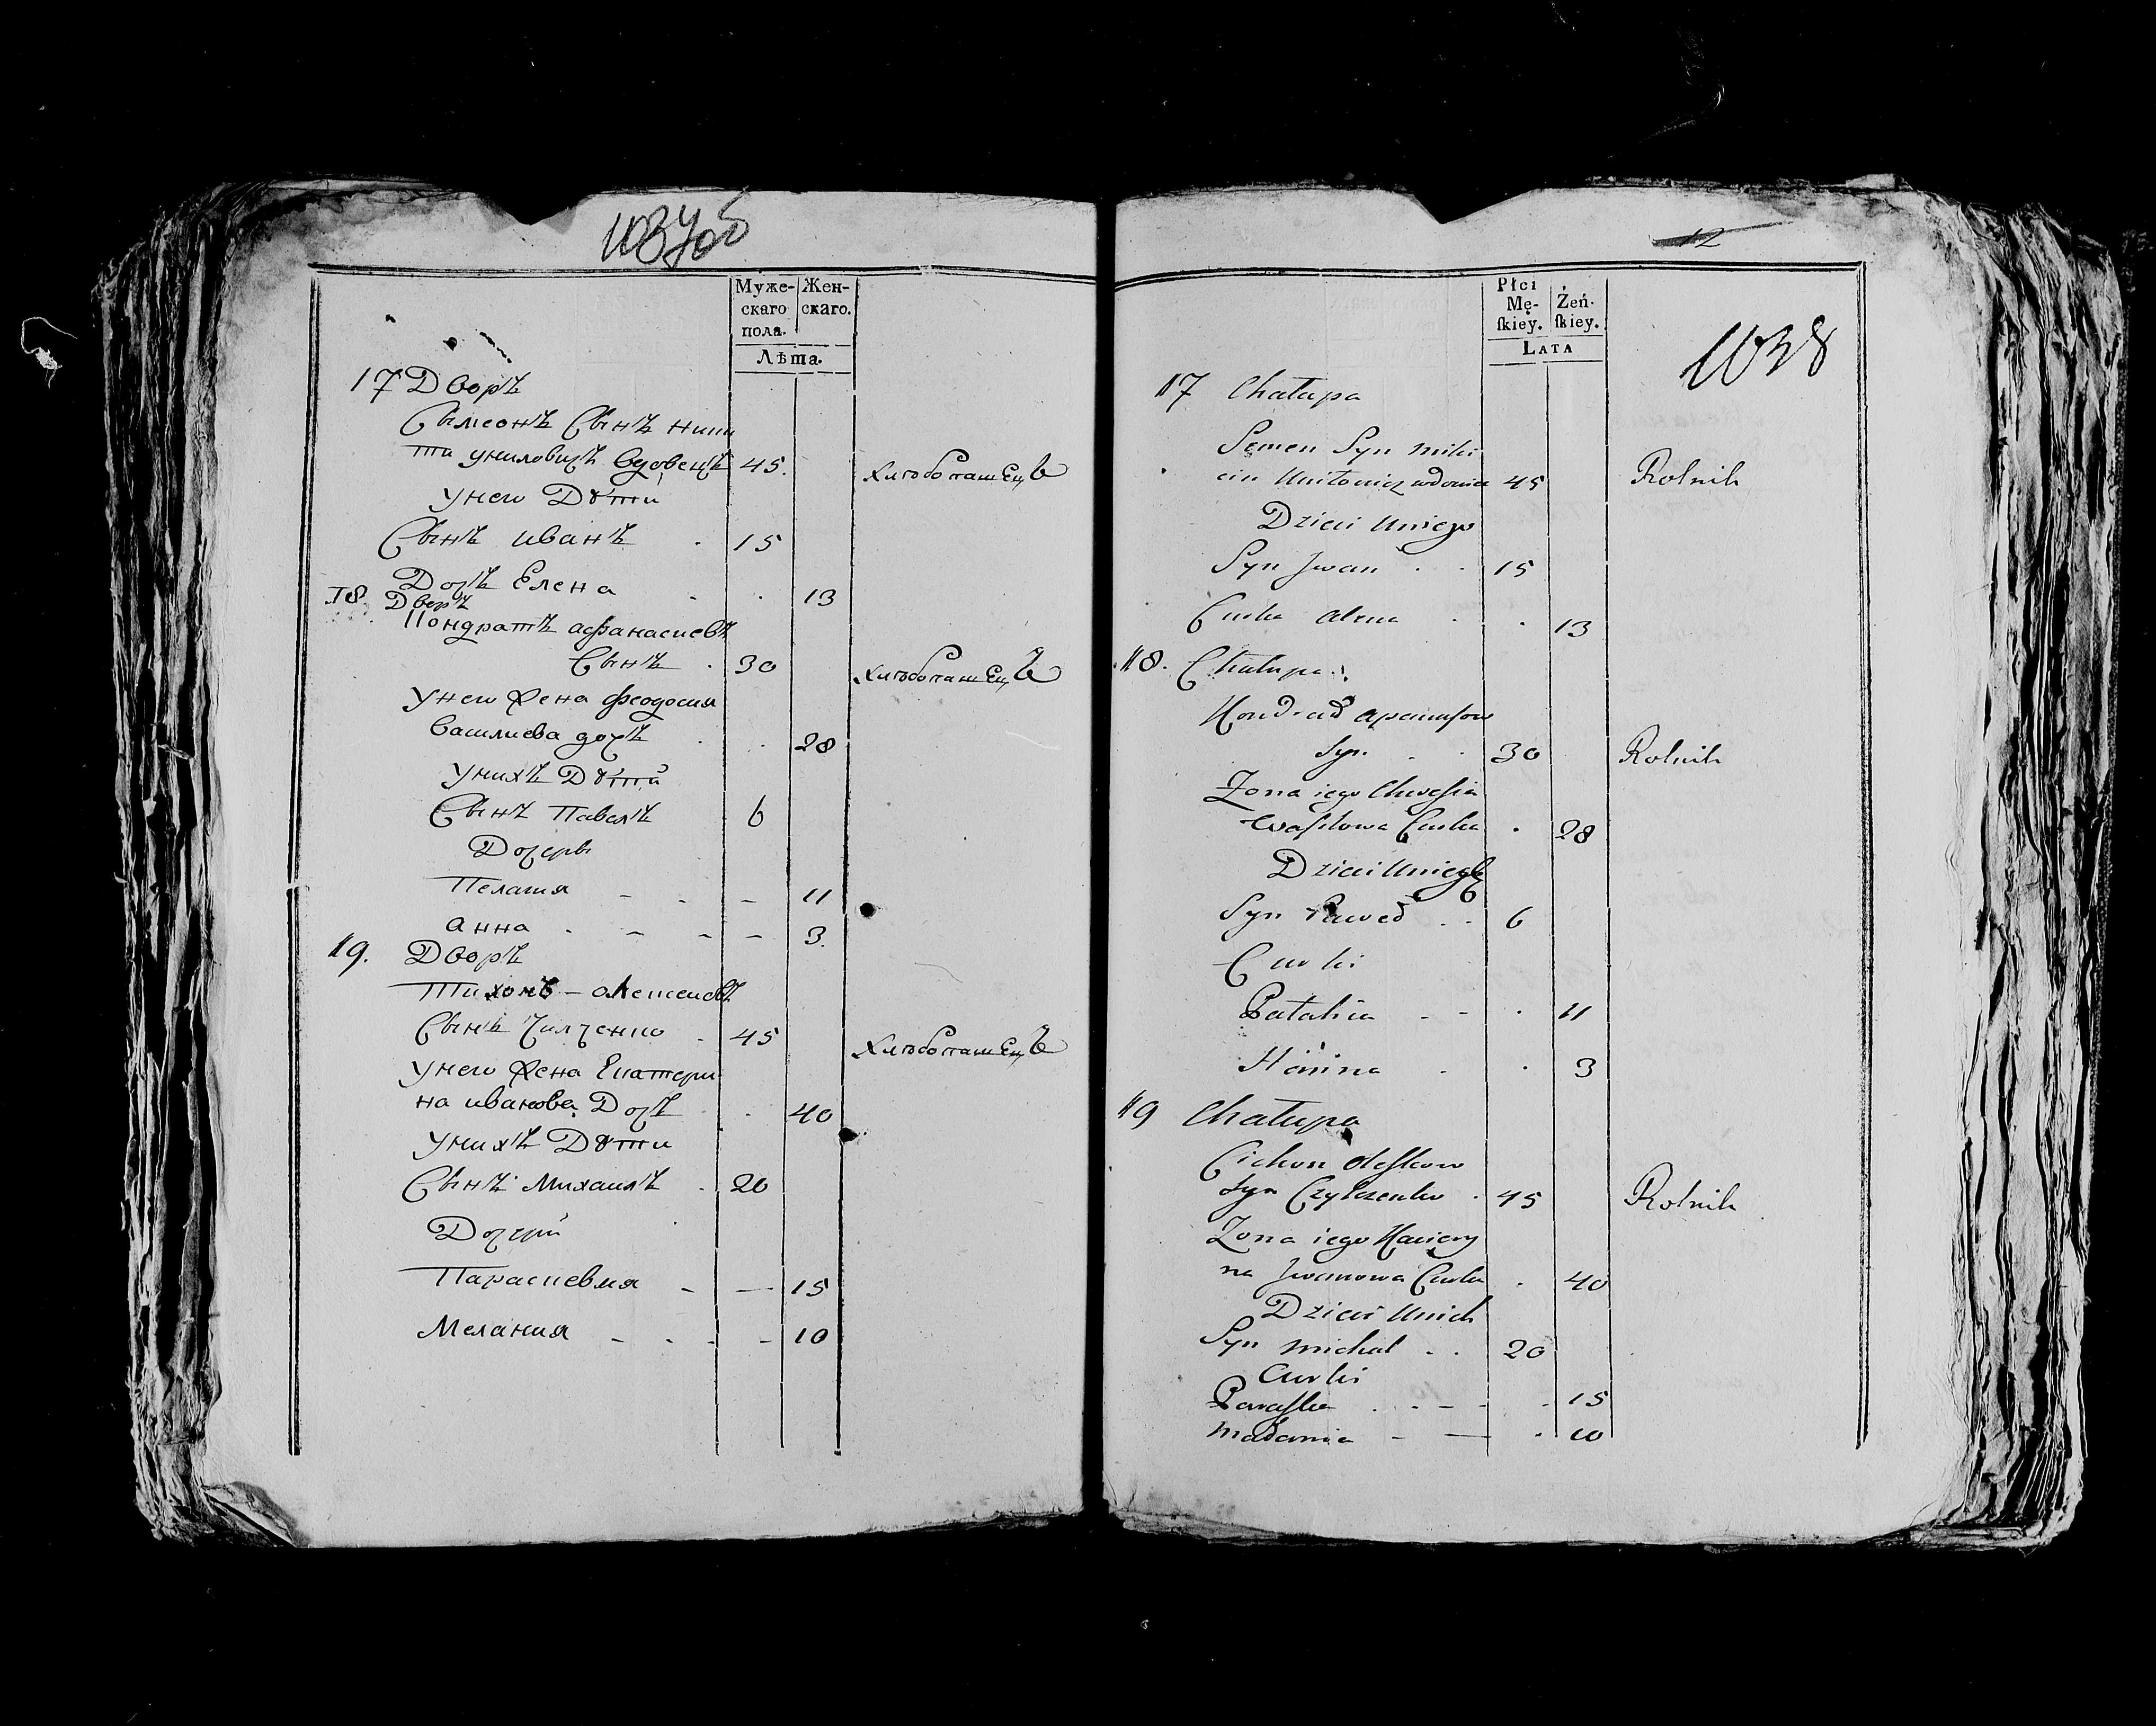 Муже-
скаго
пола.
Жен-
скаго.
Лѣта.
17 Дворъ
Сымеонъ Сынъ Ники
та униловичъ вдовецъ 45. хлѣбопашецъ
у него Дѣти
Сынъ иванъ . 15
Дочь Елена . . 13
18 Дворъ
Кондратъ афанасиевъ
Сынъ . 30 хлѣбопашецъ
у него жена феодосия
василиева дочь . . 28
у нихъ Дѣти
Сынъ Павелъ 6
Дочери
Пелагия - - - 11
анна . - - - 3.
19. Дворъ
Тихонъ - алексеевъ
Сынъ Чилченко . 45 хлѣбопашецъ
у него жена Екатери
на иванова Дочь . . 40
у нихъ Дѣти
Сынъ Михаилъ . 20
Дочери
Параскевия - - 15
Мелания - - - - 10
12
1038
Płci
Mę-
ſkiey.
Żeń-
ſkiey.
LATA
17 Chałupa
Semen Syn Miki
cin Uniłowicz wdowiec 45 Rolnik
Dzieci Uniego
Syn Jwan . . 15
Curka alena . . 13
18. Chałupa
Kondrad apanaſow
Syn . . 30 Rolnik
Żona iego Chwesia
Waſilowa Curka . 28
Dzieci Uniego
Syn Paweł . . 6
Curki
Patahia - - . 11
Hanna . . 3
19 Chałupa
Cichon Oleſkow
Syn Czylczenko . 45 Rolnik
Żona iego Kaciery
na Jwanowa Curka . 40
Dzieci Unich
Syn Michał . . 20
Curki
Paraſka . . - - . 15
Małania - - . 10